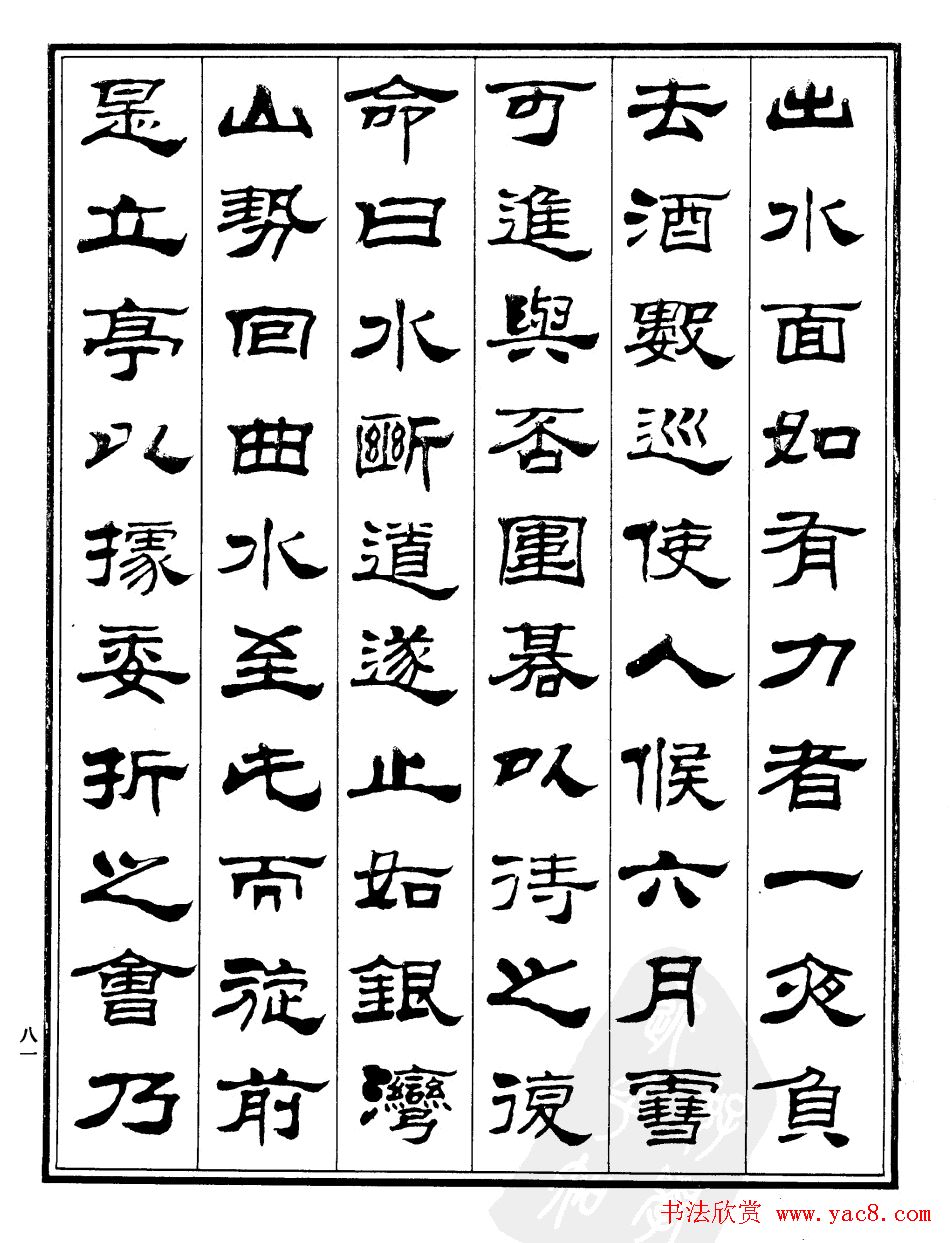 出水面如有力者一夜負
去酒數巡使人候六月雪
可進與否圍碁以待之復
命曰水斷道遂止如銀灣
山勢回曲水至此而旋前
是立亭以據委折之會乃
八一
书法欣赏 www.yac8.com